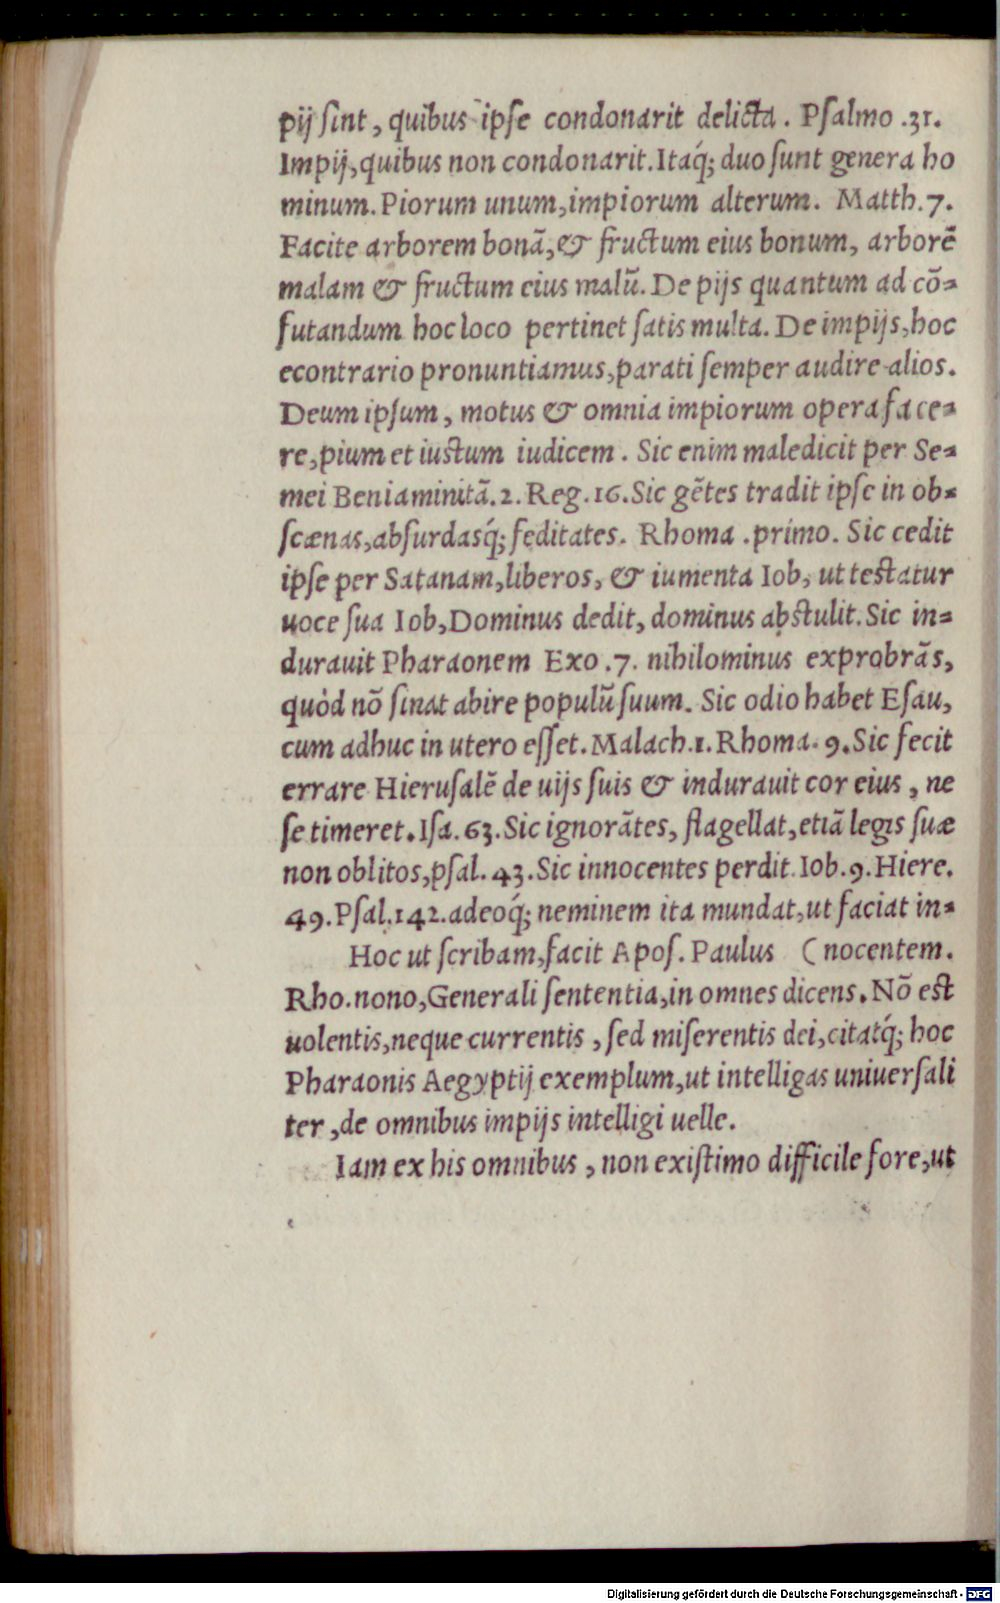 pij ſint, quibus ipſe condonarit delicta. Pſalmo .31.
Impij, quibus non condonarit. Itaq́; duo ſunt genera ho
minum. Piorum unum, impiorum alterum. Matth. 7.
Facite arborem bonā, & fructum eius bonum, arborē
malam & fructum eius malū. De pijs quantum ad cō-
futandum hoc loco pertinet ſatis multa. De impijs, hoc
econtrario pronuntiamus, parati ſemper audire alios.
Deum ipſum, motus & omnia impiorum opera face-
re, pium et iuſtum iudicem. Sic enim maledicit per Se-
mei Beniaminitā. 2. Reg. 16. Sic gētes tradit ipſe in ob-
ſcænas, abſurdasq́; feditates. Rhoma .primo. Sic cedit
ipſe per Satanam, liberos, & iumenta Iob, ut teſtatur
uoce ſua Iob, Dominus dedit, dominus abſtulit. Sic in-
durauit Pharaonem Exo .7. nihilominus exprobrās,
quòd nō ſinat abire populū ſuum. Sic odio habet Eſau,
cum adhuc in utero eſſet. Malach. 1. Rhoma. 9. Sic fecit
errare Hieruſalē de uijs ſuis & indurauit cor eius, ne
ſe timeret. Iſa. 63. Sic ignorātes, flagellat, etiā legis ſuæ
non oblitos, pſal. 43. Sic innocentes perdit. Iob. 9. Hiere.
49. Pſal. 142. adeoq́; neminem ita mundat, ut faciat in-
Hoc ut ſcribam, facit Apoſ. Paulus ( nocentem.
Rho. nono, Generali ſententia, in omnes dicens. Nō eſt
uolentis, neque currentis, ſed miſerentis dei, citatq́; hoc
Pharaonis Aegyptij exemplum, ut intelligas uniuerſali
ter, de omnibus impijs intelligi uelle.
Iam ex his omnibus, non exiſtimo difficile fore, ut
Digitalisierung gefördert durch die Deutsche Forschungsgemeinschaft - DFG